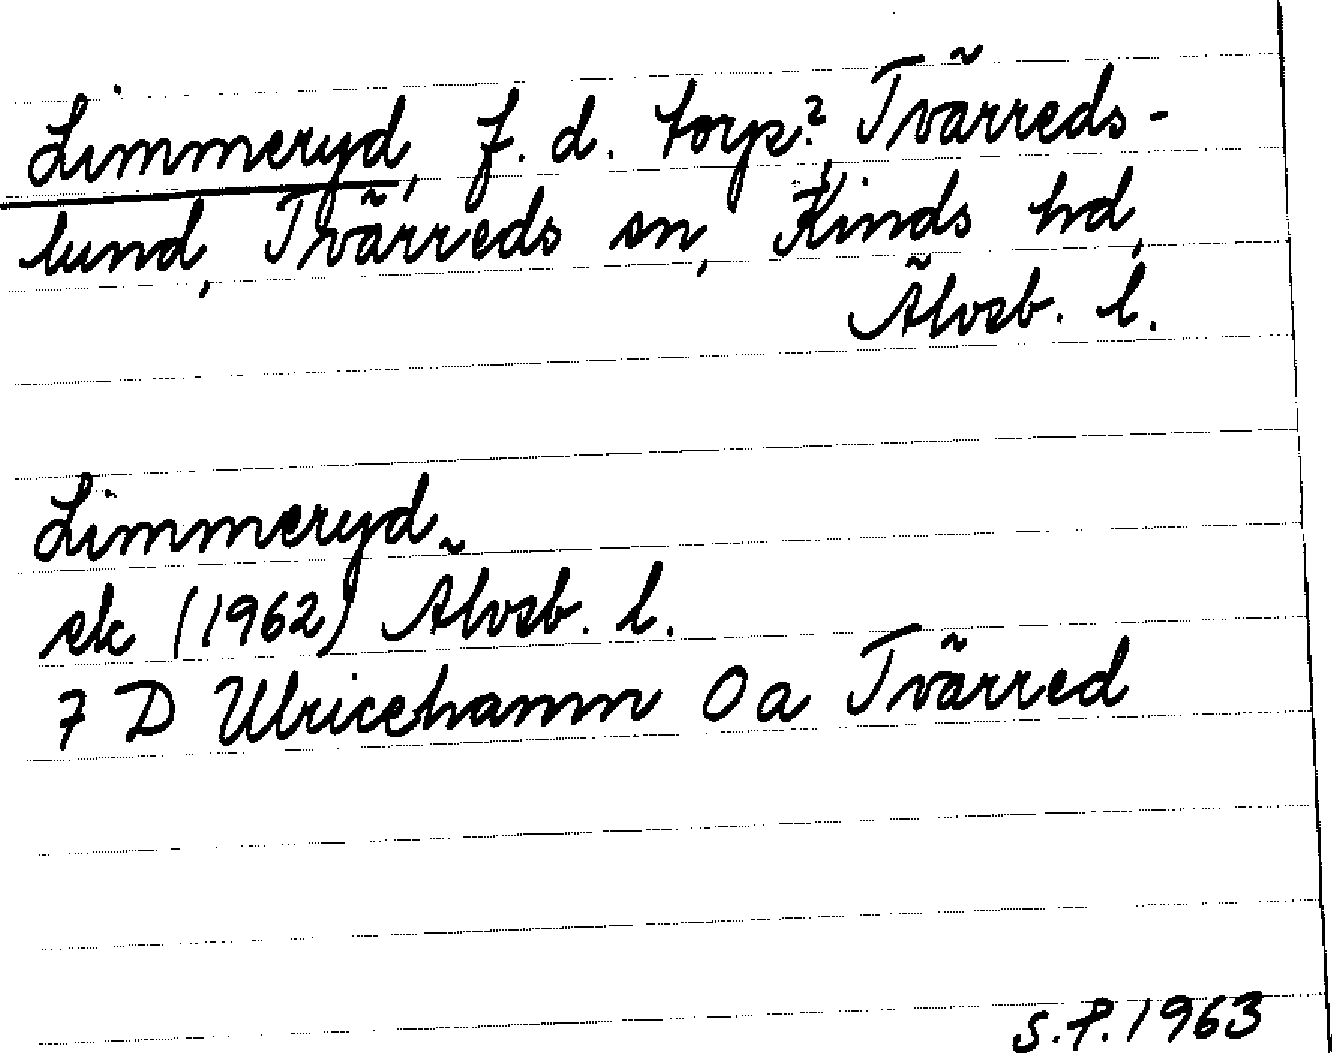 Limmeryd, f. d. torp?, Tvärreds-
lund, Tvärreds sn, Kinds hd,
Älvsb. l.
Limmeryd
ek (1962) Älvsb. l.
7 D Ulricehamn 0 a Tvärred
S.P. 1963